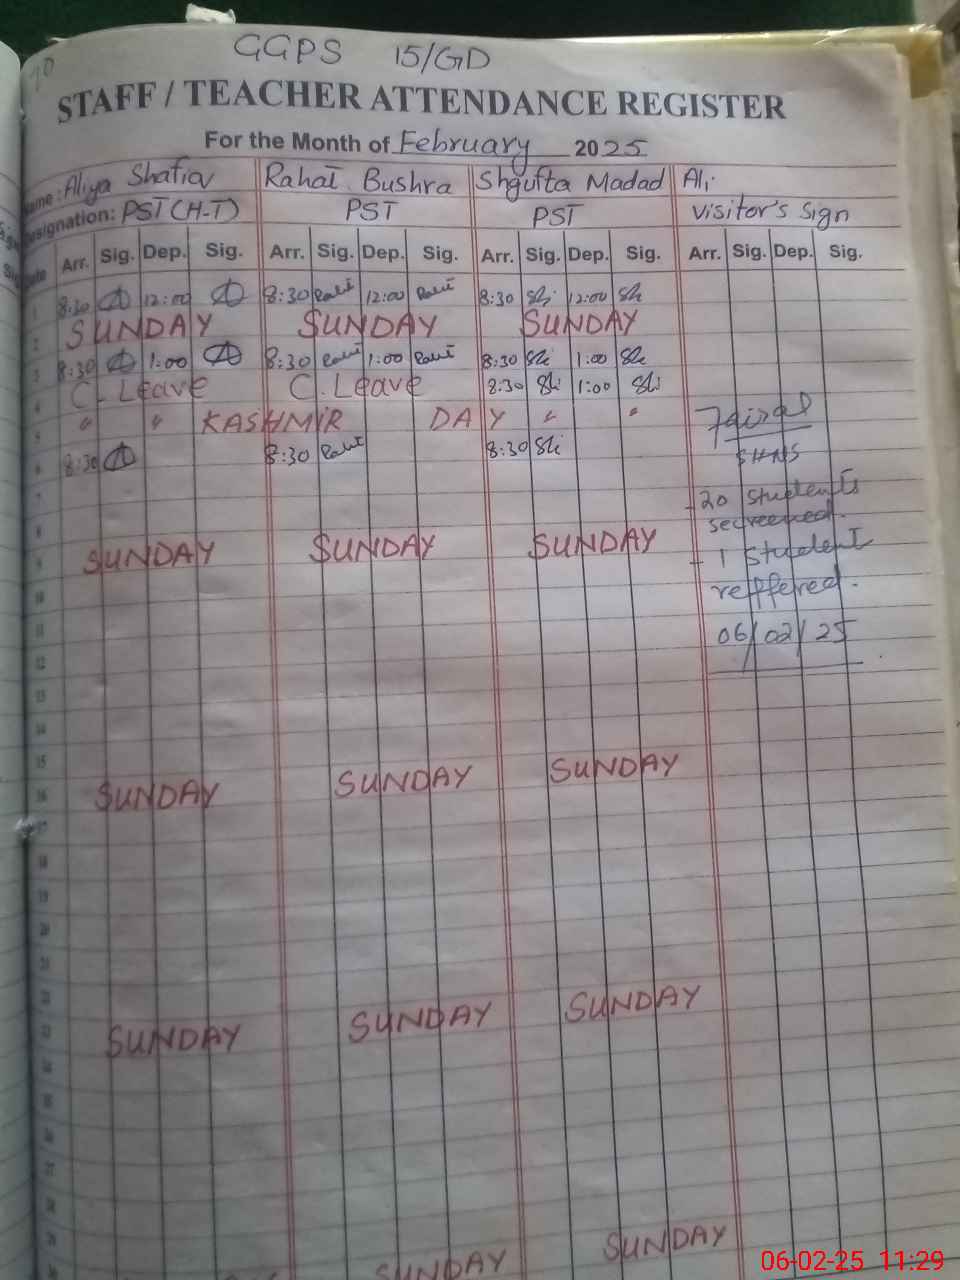 GGPS 15/GD
STAFF / TEACHER ATTENDANCE REGISTER
For the Month of February 2025
Name: Aliya Shafia Rahat Bushra Shgufta Madad Ali
Designation: PST (H-T) PST PST Visitor's Sign
Date Arr. Sig. Dep. Sig. Arr. Sig. Dep. Sig. Arr. Sig. Dep. Sig. Arr. Sig. Dep. Sig.
1 8:30 12:00 8:30 12:00 8:30 Sh 12:00 Sh
2 SUNDAY SUNDAY SUNDAY
3 8:30 1:00 8:30 1:00 8:30 Sh 1:00 Sh
4 C. Leave C. Leave 8:30 Sh 1:00 Sh
5 " " KASHMIR DAY " " Faisal
6 8:30 8:30 8:30 Sh SHNS
7 - 20 students
8 secreened.
9 SUNDAY SUNDAY SUNDAY - 1 Student
10 reffered.
11 06/02/25
12
13
14
15
16 SUNDAY SUNDAY SUNDAY
17
18
19
20
21
22
23 SUNDAY SUNDAY SUNDAY
24
25
26
27
28
29 SUNDAY
30 SUNDAY
06-02-25 11:29